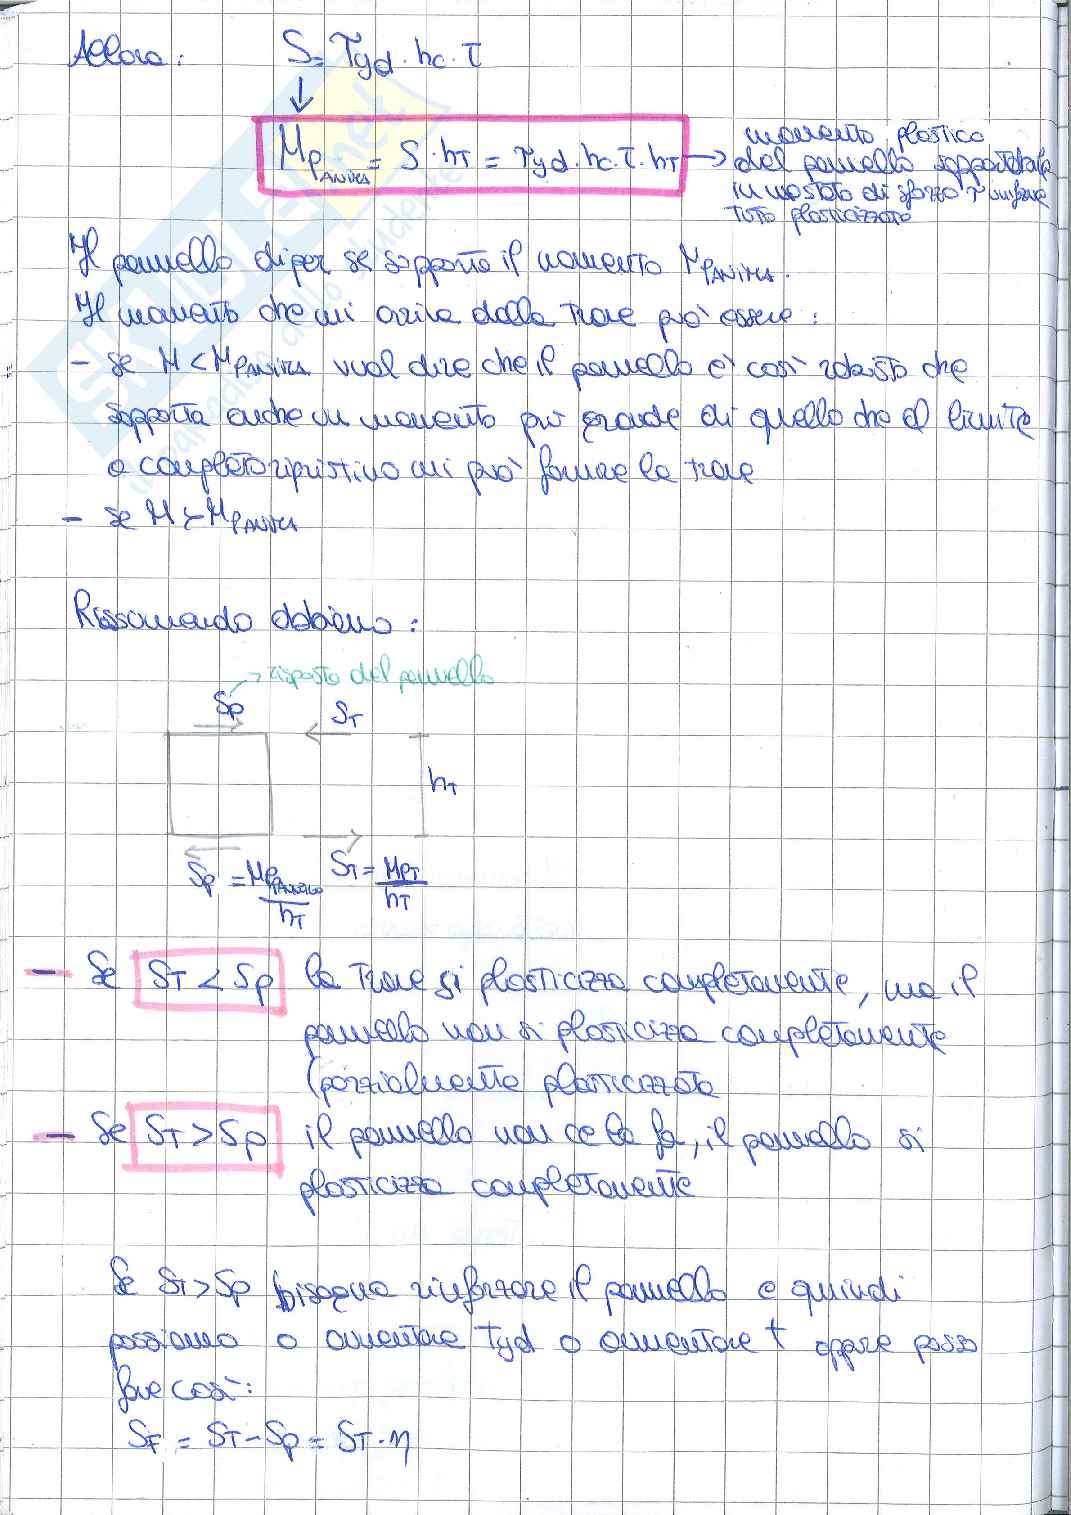 Allora: S = τyd · hc · τ
MPANIMA = S · hT = τyd · hc · τ · hT → momento plastico
del pannello sopportabile
in uno stato di sforzo τ uniforme
tutto plasticizzato
Il pannello di per se sopporta il momento MPANIMA.
Il momento che mi arriva dalla trave può essere:
- se M < MPANIMA vuol dire che il pannello è così robusto che
sopporta anche un momento più grande di quello che al limite
a completo ripristino mi può fornire la trave
- se M > MPANIMA
Riassumendo abbiamo:
→ risposta del pannello
Sp ST
hT
Sp = MPPANNELLO / hT ST = MPT / hT
- Se ST < Sp la trave si plasticizza completamente, ma il
pannello non si plasticizza completamente
(parzialmente plasticizzato
- Se ST > Sp il pannello non ce la fa, il pannello si
plasticizza completamente
Se ST > Sp bisogna rinforzare il pannello e quindi
possiamo o aumentare τyd o aumentare t oppure posso
fare così:
SF = ST - Sp = ST · η
SKUOLA.net
impariamo dallo studente